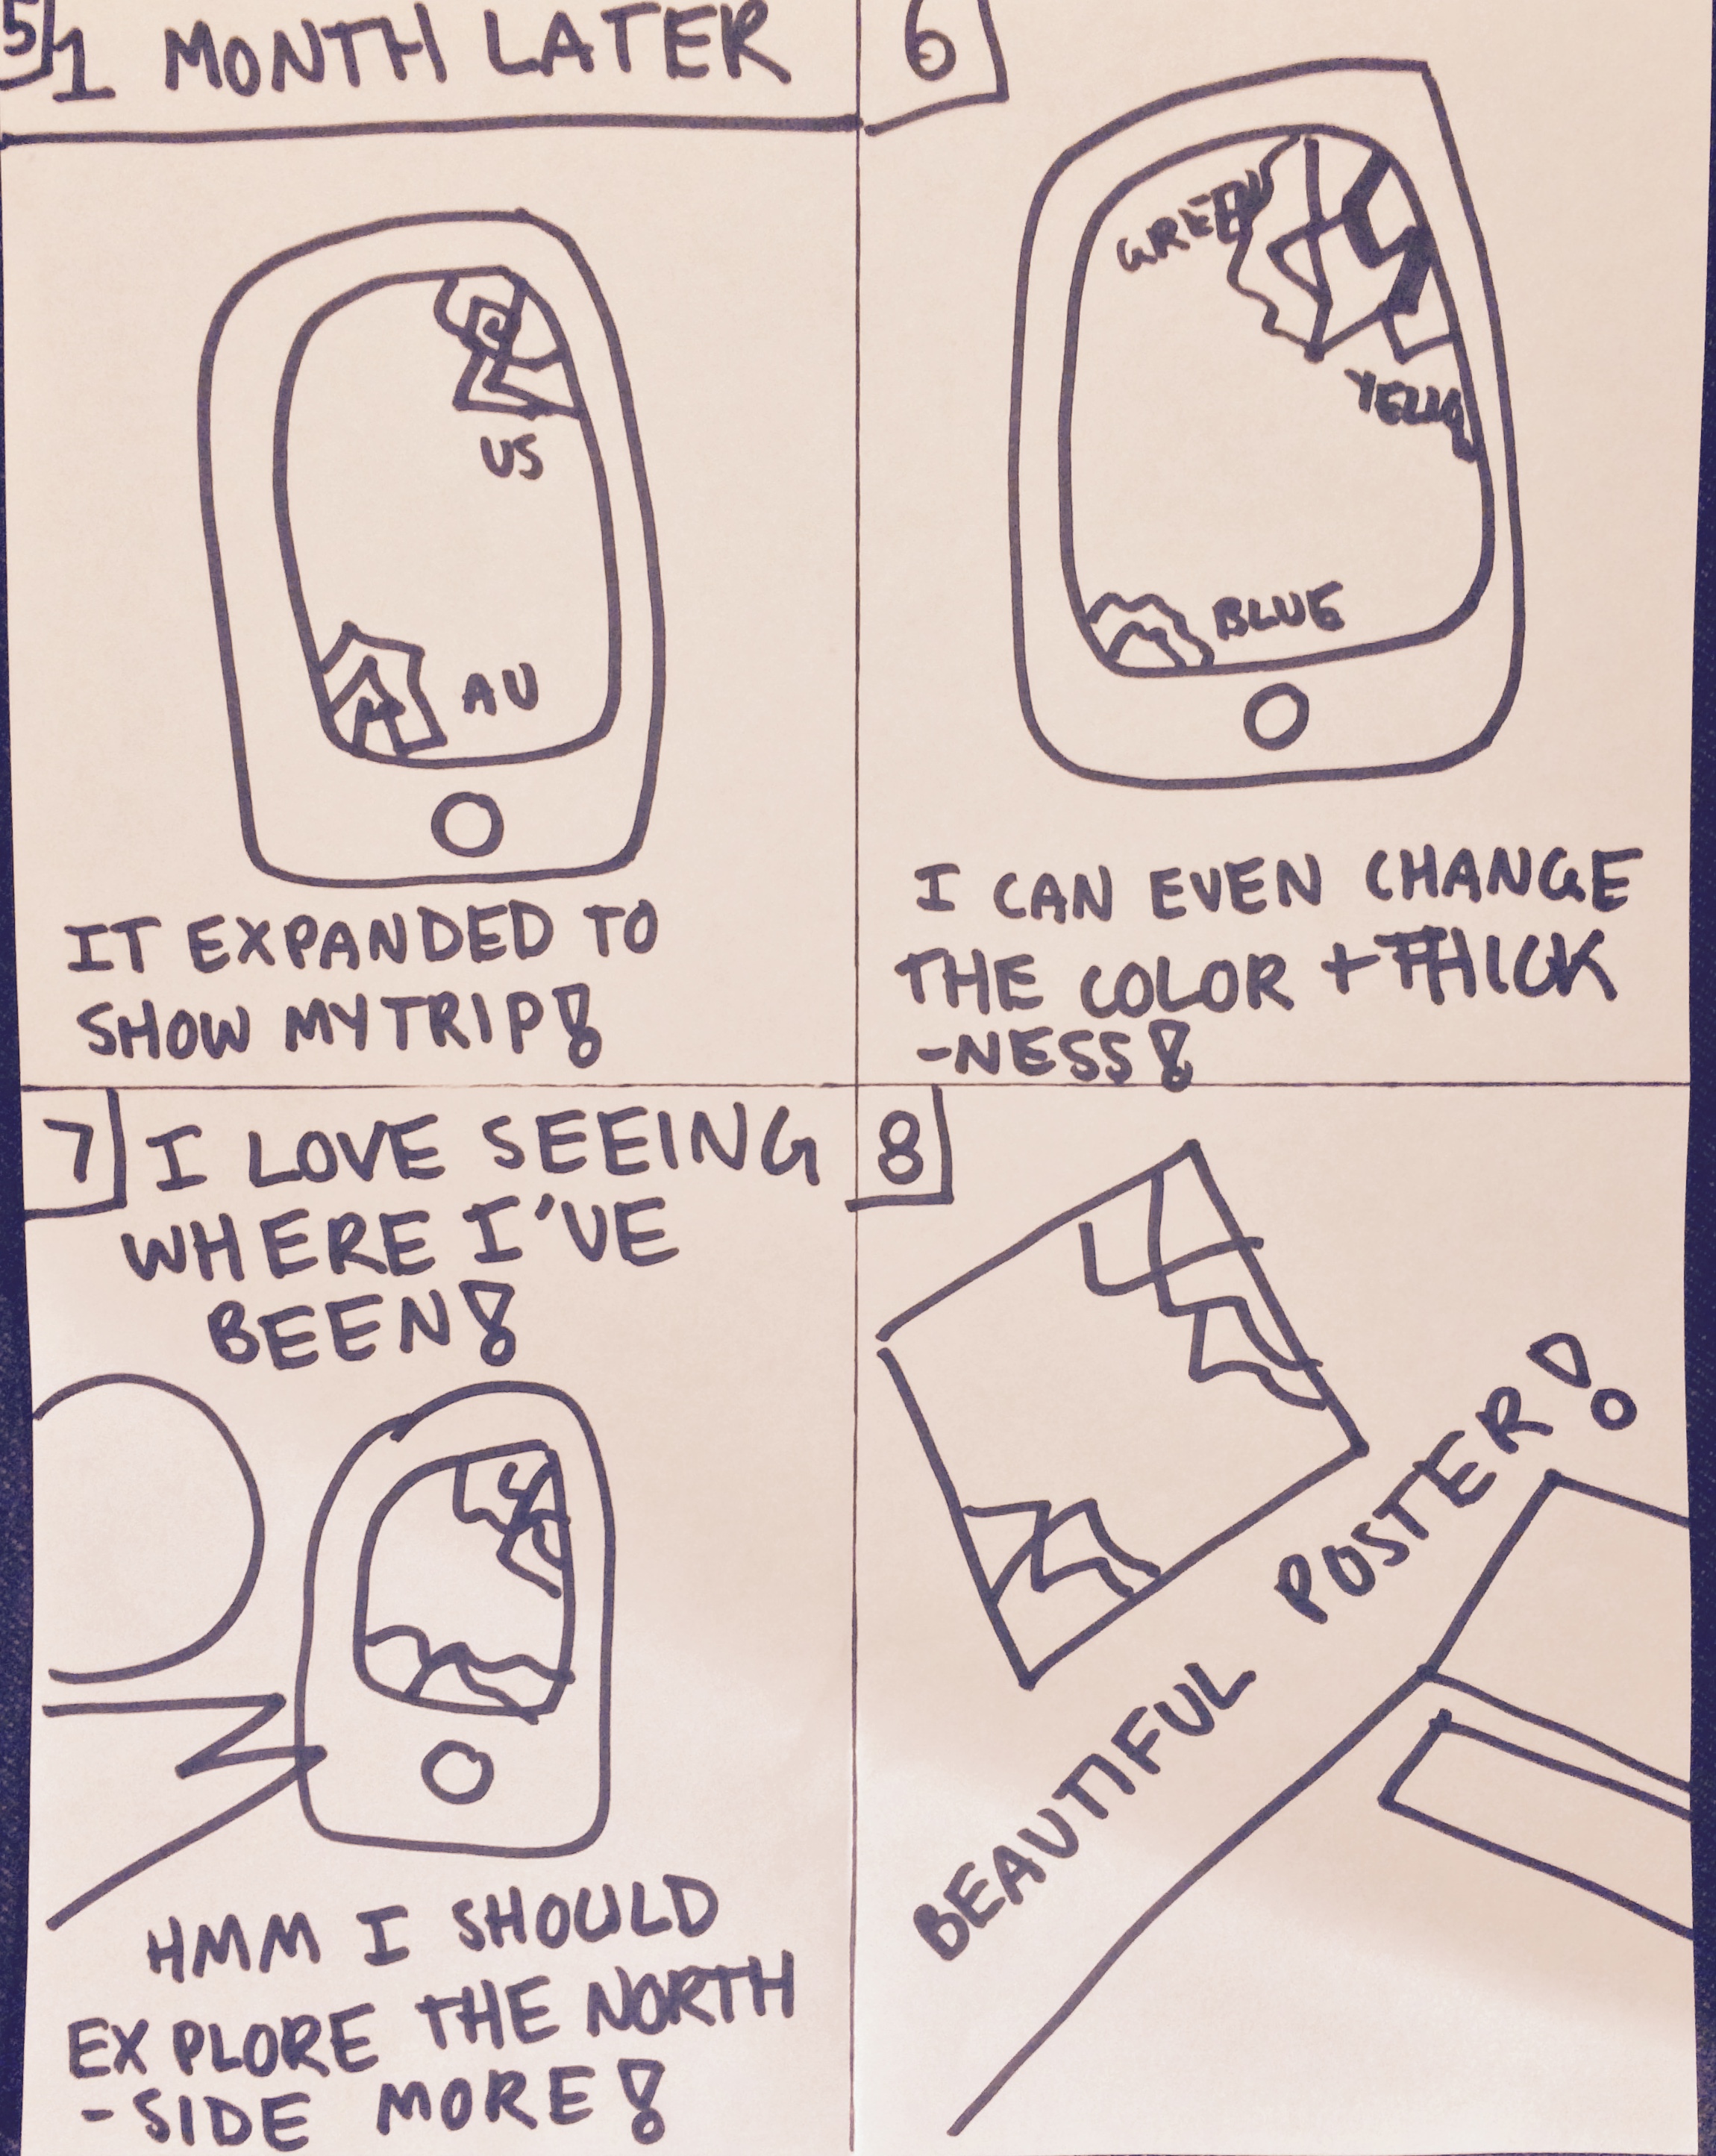 5
1 MONTH LATER
US
AU
IT EXPANDED TO
SHOW MY TRIP!
6
GREEN
YELLO
BLUE
I CAN EVEN CHANGE
THE COLOR + THICK
-NESS!
7
I LOVE SEEING
WHERE I'VE
BEEN!
HMM I SHOULD
EXPLORE THE NORTH
-SIDE MORE!
8
BEAUTIFUL POSTER!